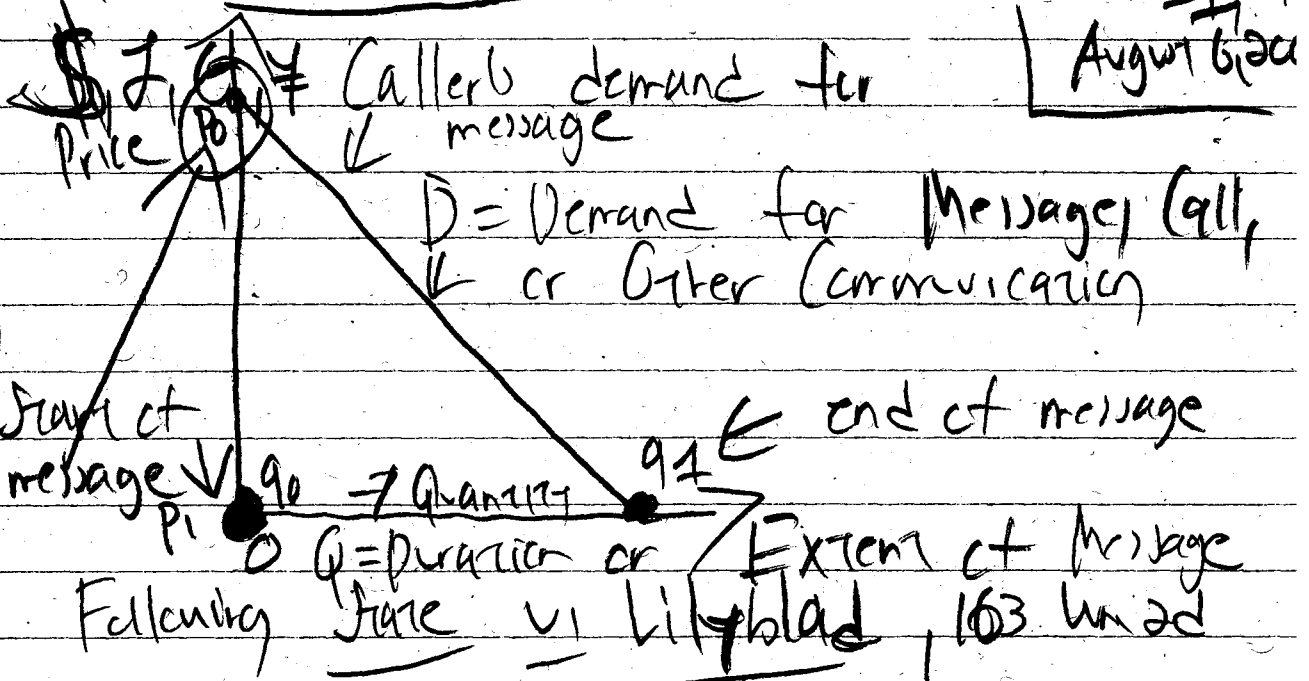 $, £, €, ¥ Caller's demand for
message
Price P0
D = Demand for Message, Call,
or Other Communication
Start of
message
end of message
q0 → Quantity q1
P1
0 Q = Duration or Extent of Message
Following State v. Lilyblad, 163 Wn 2d